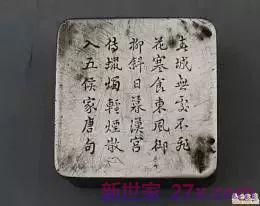 春城無處不飛
花寒食東風御
柳斜日暮漢宮
傳蠟燭輕煙散
入五侯家唐句
新世家